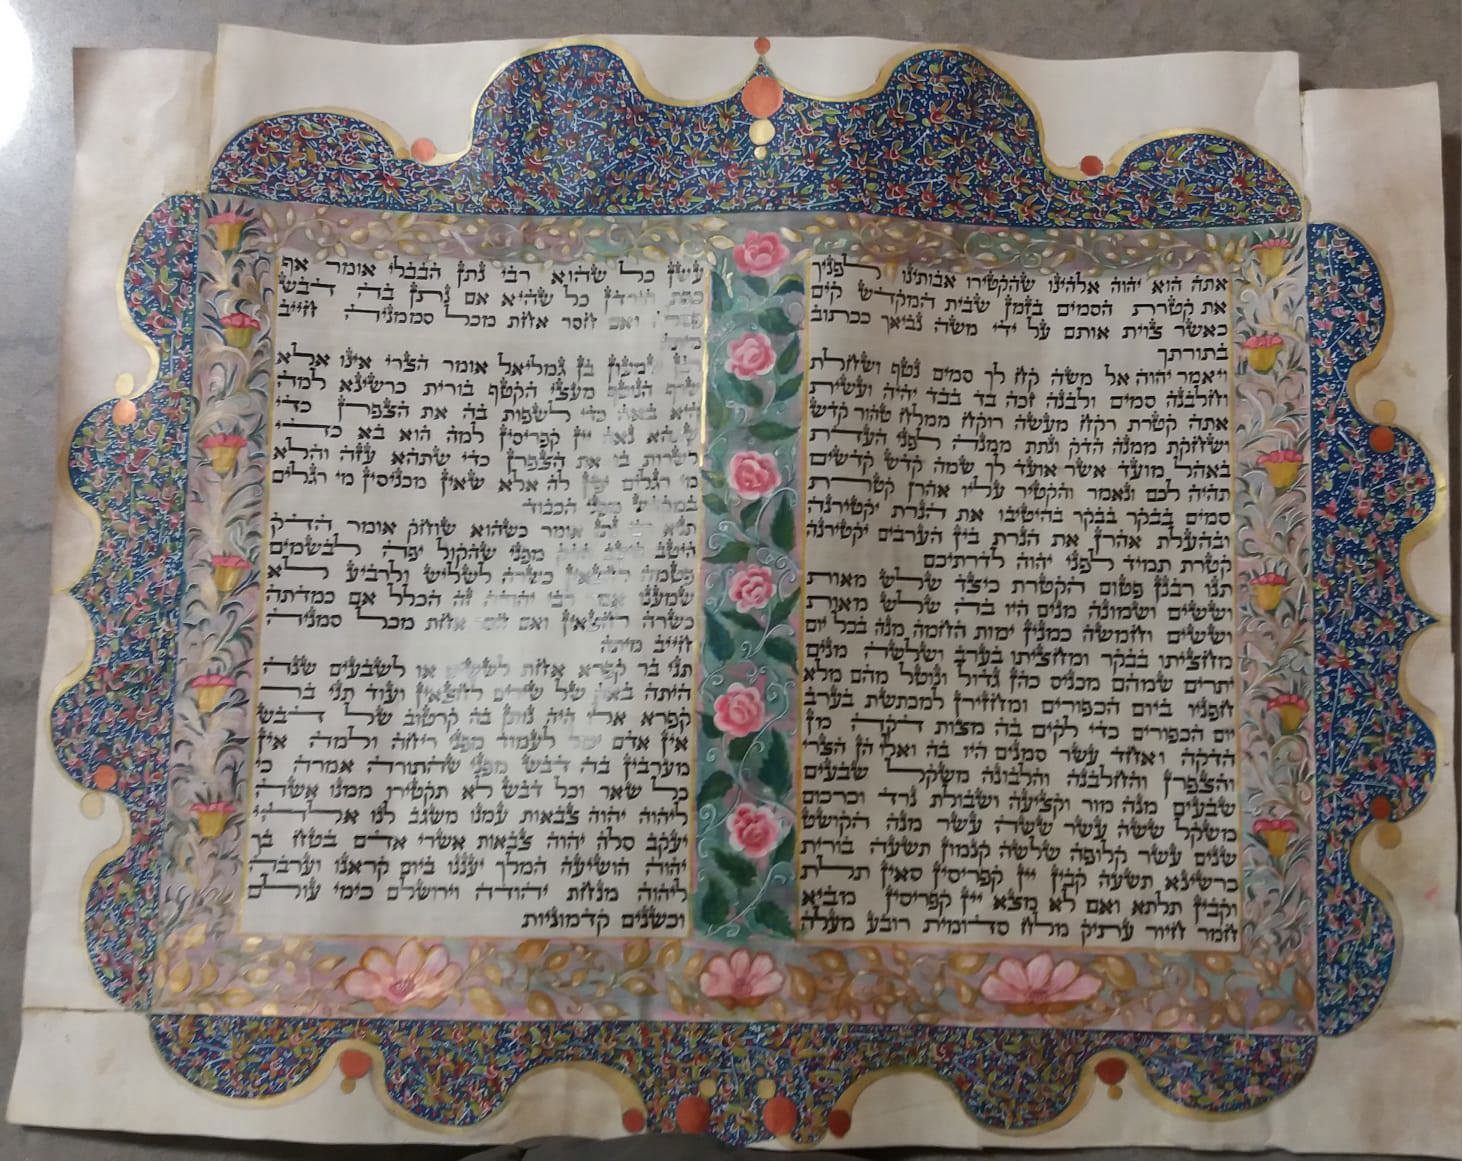 אתה הוא יהוה אלהינו שהקטירו אבותינו לפניך
את קטרת הסמים בזמן שבית המקדש קים
כאשר צוית אותם על ידי משה נביאך ככתוב
בתורתך
ויאמר יהוה אל משה קח לך סמים נטף ושחלת
וחלבנה סמים ולבנה זכה בד בבד יהיה ועשית
אתה קטרת רקח מעשה רוקח ממלח טהור קדש
ושחקת ממנה הדק ונתת ממנה לפני העדת
באהל מועד אשר אועד לך שמה קדש קדשים
תהיה לכם ונאמר והקטיר עליו אהרן קטרת
סמים בבקר בבקר בהיטיבו את הנרת יקטירנה
ובהעלת אהרן את הנרת בין הערבים יקטירנה
קטרת תמיד לפני יהוה לדרתיכם
תנו רבנן פטום הקטרת כיצד שלש מאות
וששים ושמונה מנים היו בה שלש מאות
וששים וחמשה כמנין ימות החמה מנה בכל יום
מחציתו בבקר ומחציתו בערב ושלשה מנים
יתרים שמהם מכניס כהן גדול ונוטל מהם מלא
חפניו ביום הכפורים ומחזירן למכתשת בערב
יום הכפורים כדי לקים בה מצות דקה מן
הדקה ואחד עשר סמנים היו בה ואלו הן הצרי
והצפרן והחלבנה והלבונה משקל שבעים
שבעים מנה מור וקציעה ושבולת נרד וכרכום
משקל ששה עשר ששה עשר מנה הקושט
שנים עשר קלופה שלשה קנמון תשעה בורית
כרשינא תשעה קבין יין קפריסין סאין תלת
וקבין תלתא ואם לא מצא יין קפריסין מביא
חמר חיור עתיק מלח סדומית רובע מעלה
עשן כל שהוא רבי נתן הבבלי אומר אף
כפת הירדן כל שהיא אם נתן בה דבש
פסלה ואם חסר אחת מכל סממניה חייב
מיתה
שמעון בן גמליאל אומר הצרי אינו אלא
שרף הנוטף מעצי הקטף בורית כרשינא למה
היא באה כדי לשפות בה את הצפרן כדי
שתהא נאה יין קפריסין למה הוא בא כדי
לשרות בו את הצפרן כדי שתהא עזה והלא
מי רגלים יפין לה אלא שאין מכניסין מי רגלים
במקדש מפני הכבוד
תניא רבי נתן אומר כשהוא שוחק אומר הדק
היטב היטב הדק מפני שהקול יפה לבשמים
פטמה לחצאין כשרה לשליש ולרביע לא
שמענו אמר רבי יהודה זה הכלל אם כמדתה
כשרה לחצאין ואם חסר אחת מכל סמניה
חייב מיתה
תני בר קפרא אחת לששים או לשבעים שנה
היתה באה של שירים לחצאין ועוד תני בר
קפרא אלו היה נותן בה קרטוב של דבש
אין אדם יכול לעמוד מפני ריחה ולמה אין
מערבין בה דבש מפני שהתורה אמרה כי
כל שאר וכל דבש לא תקטירו ממנו אשה
ליהוה יהוה צבאות עמנו משגב לנו אלהי
יעקב סלה יהוה צבאות אשרי אדם בטח בך
יהוה הושיעה המלך יעננו ביום קראנו וערבה
ליהוה מנחת יהודה וירושלם כימי עולם
וכשנים קדמוניות